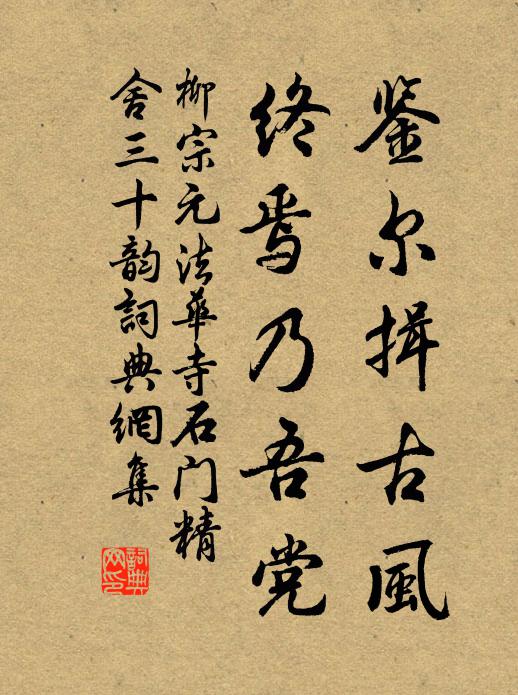 鉴尔揖古風
终焉乃吾党
柳宗元法華寺石门精
舍三十韵詞典網集
詞典网印